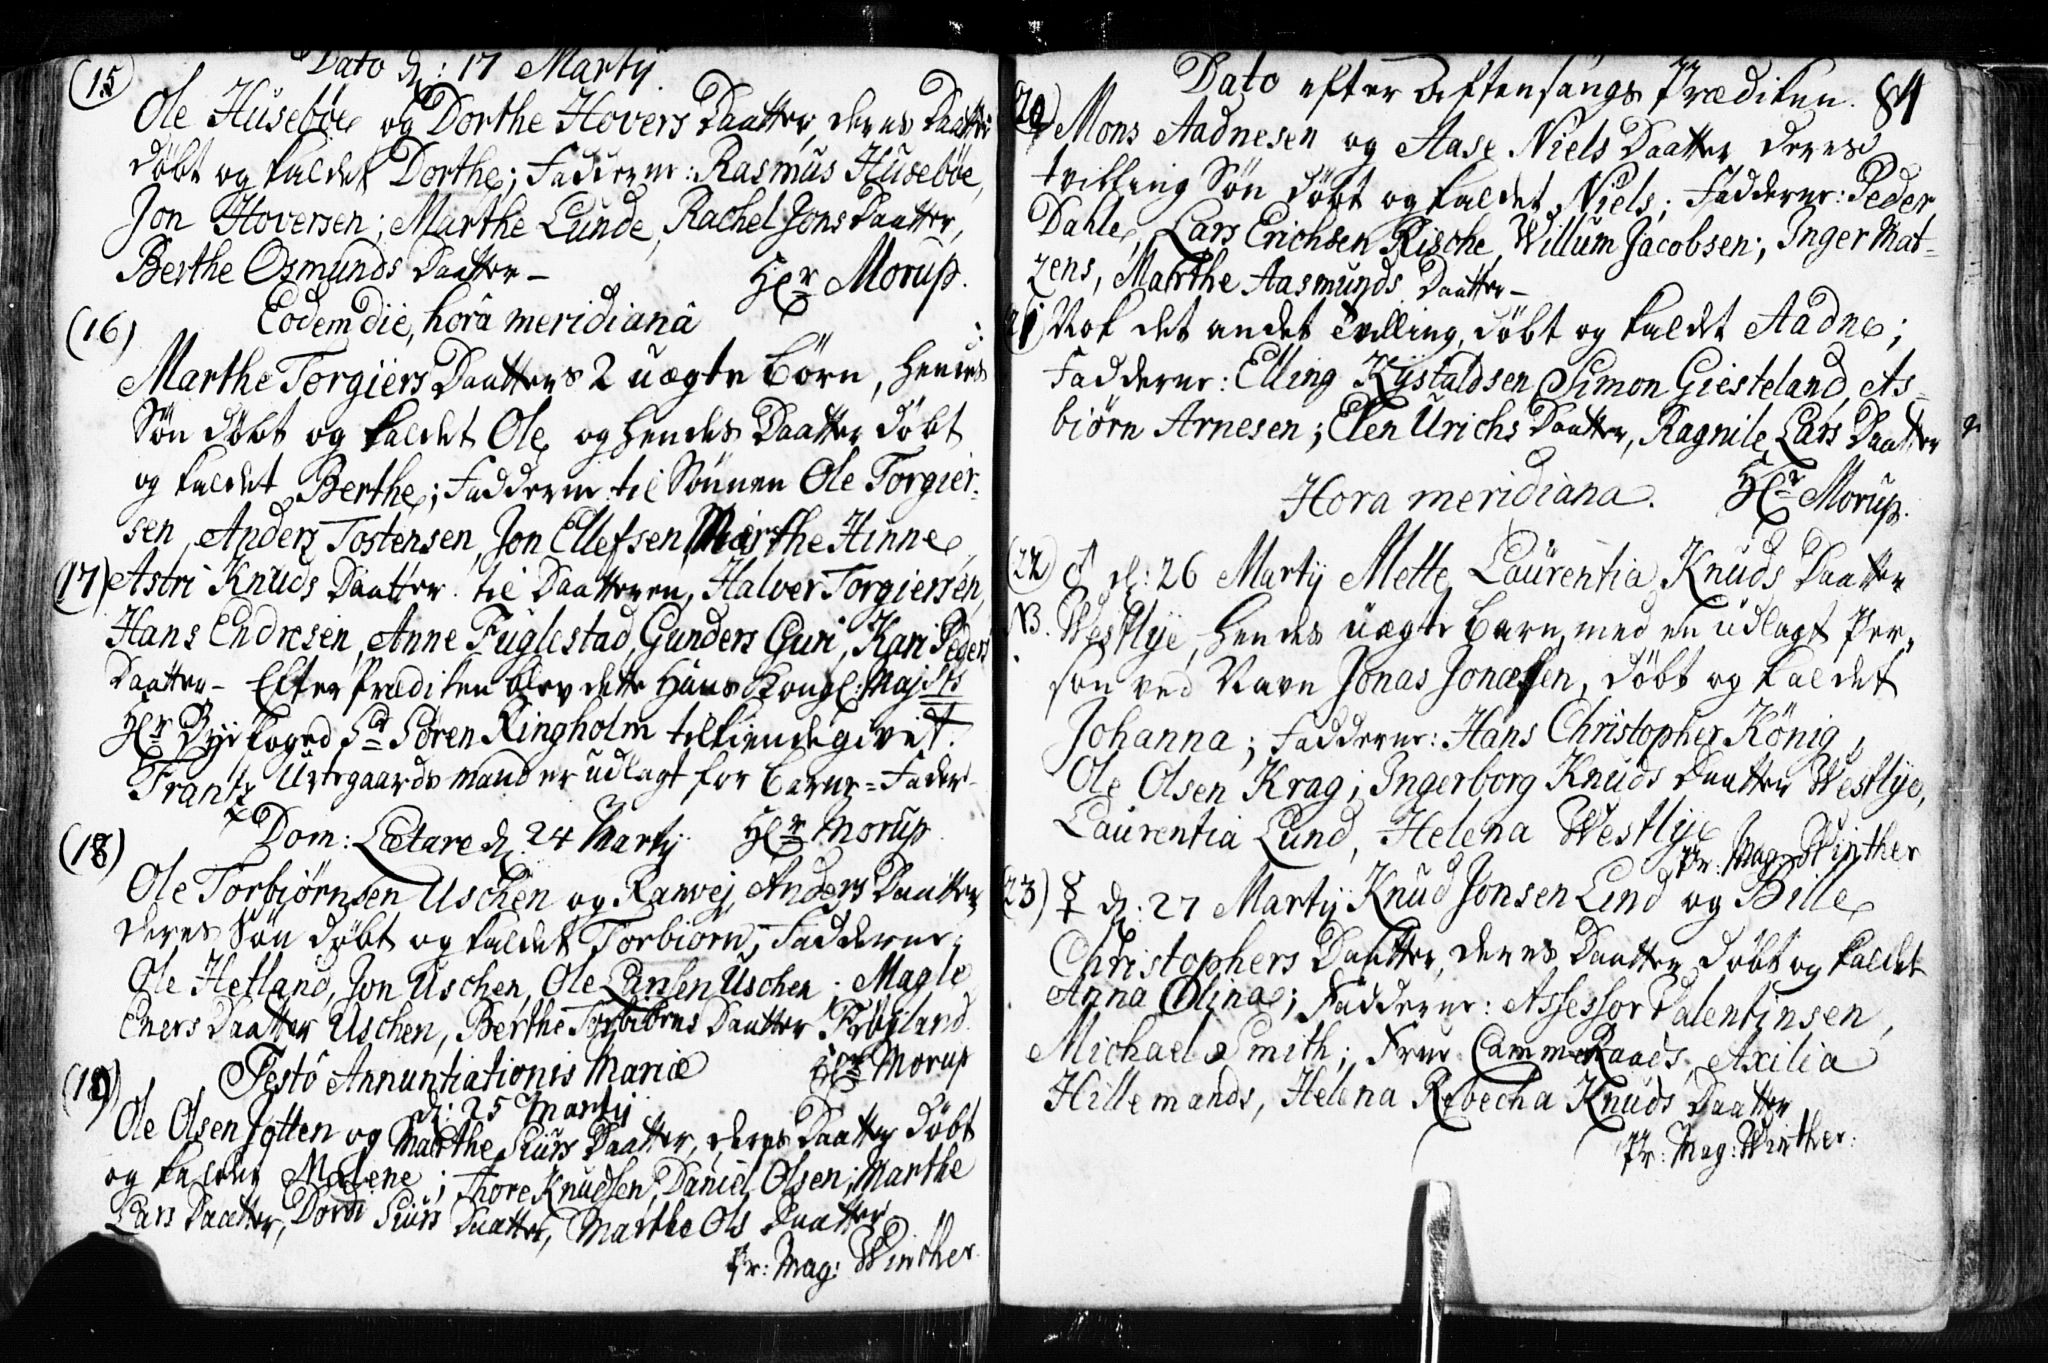 Dato d: 17 Martÿ
(15)
Ole Husebøe og Dorthe Hovers Daatter, deres Daatter
døbt og kaldet Dorthe; Faddere: Rasmus Husebøe,
Jon Hoversen; Marthe Lunde, Rachel Jons Daatter,
Berthe Osmunds Daatter – Hr Morup.
Eodem die, horâ meridianâ
(16)
Marthe Torgiers Daatters 2 uægte Børn, hendes
Søn døbt og kaldet Ole og hendes Daatter døbt
og kaldet Berthe; Fadderne til Sønnen Ole Torgier-
sen, Anders Tostensen, Jon Ellefsen, Marthe Hinne,
(17) Astri Knuds Daatter. til Daatteren, Halver Torgiersen,
Hans Endresen, Anne Fuglestad, Gunders Guri, Kari Peders
Daatter – Efter Prædiken blev dette Hans Kongl: Majts
Hr Byefoged Sr Søren Ringholm tilkiendegivet.
Frantz Urtegaardsmand er udlagt for Barne-Fader
Dom: Lætare d. 24 Martÿ Hr Morup.
(18)
Ole Torbiørnsen Uschen og Ranvej Anders Daatter
deres Søn døbt og kaldet Torbiørn; Fadderne:
Ole Hetland, Jon Uschen, Ole Larsen Uschen; Magle
Eners Daatter Uschen, Berthe Torbiørns Daatter Frøyland.
Festô Annuntiationis Mariæ Hr Morup
d: 25 Martÿ
(19)
Ole Olsen Jotten og Marthe Siurs Daatter, deres Daatter døbt
og kaldet Malene; Thore Knudsen, Daniel Olsen; Marthe
Lars Daatter, Dorte Siurs Daatter, Marthe Ols Daatter
Pr: Mag: Winther.
Dato efter Aftensangs Prædiken. 84
(20) Mons Aadnesen og Aase Niels Daatter, deres
tvilling Søn døbt og kaldet Niels; Fadderne: Peder
Dahle, Lars Erichsen Rische, Willum Jacobsen; Inger Mat-
zens, Marthe Aasmunds Daatter –
(21) Nok det andet Tvilling, døbt og kaldet Aadne;
Fadderne: Elling Kÿstaldsen, Simon Giesteland, As-
biørn Arnesen; Elen Urichs Daatter, Ragnile Lars Daatter
Hora meridiana. Hr Morup.
(22) ♂ d: 26 Martÿ Mette Laurentia Knuds Daatter
NB. Westlÿe, hendes uægte Barn, med en udlagt Per-
son ved Navn Jonas Jonæsen, døbt og kaldet
Johanna; Fadderne: Hans Christopher König,
Ole Olsen Krag; Ingerborg Knuds Daatter Westlÿe,
Laurentia Lund, Helena Westlÿe
Pr: Mag: Winther
(23) ☿ d: 27 Martÿ Knud Jonsen Lind og Bille
Christophers Daatter, deres Daatter døbt og kaldet
Anna Olina; Fadderne: Assessor Valentinsen,
Michael Smith; Frue CammerRaads, Axilia
Hillemands, Helena Rebecha Knuds Daatter
Pr: Mag: Winther.